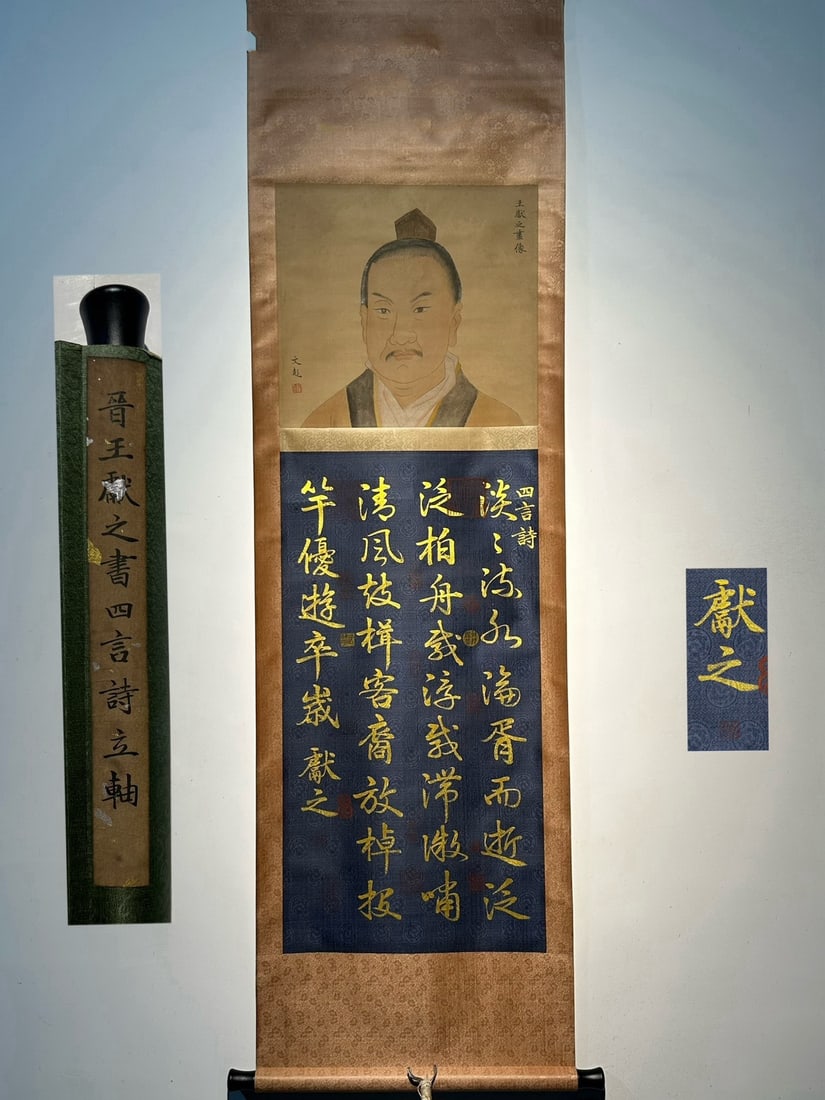 晉王獻之書四言詩立軸
王獻之畫像
文
四言詩
淡〻流水淪胥而逝泛
泛柏舟載浮載滯微嘯
清風鼓楫容裔放棹投
竿優遊卒歲 獻之
獻之